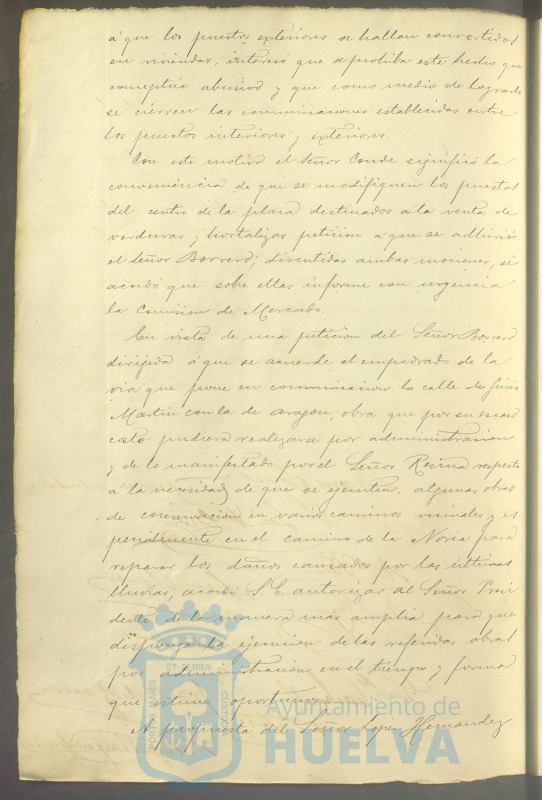 á que los puestos exteriores se hallan convertidos
en viviendas, interesó que se prohiba este hecho que
conceptúa abusivo y que como medio de lograrlo
se cierren las comunicaciones establecidas entre
los puestos interiores y exteriores.
Con este motivo el Señor Conde significó la
conveniencia de que se modifiquen los puestos
del centro de la plaza destinados a la venta de
verduras y hortalizas peticion a que se adhirió
el Señor Borrero; discutidas ambas mociones, se
acordó que sobre ellas informe con urgencia
la Comision de Mercado.
En vista de una peticion del Señor Borrero
dirijida á que se acuerde el empedrado de la
via que pone en comunicacion la calle de Ginés
Martin con la de Aragon, obra que por su escaso
costo pudiera realizarse por administracion
y de lo manifestado por el Señor Resina respecto
á la necesidad de que se ejecuten algunas obras
de conservacion en varios caminos vecinales y es
pecialmente en el camino de la Noria para
reparar los daños causados por las últimas
lluvias, acordó S. E. autorizar al Señor Presi
dente de la manera mas amplia para que
disponga la ejecucion de las referidas obras
por administracion en el tiempo y forma
que estime oportuno.
A propuesta del Señor Lopez Hernandez
PORTUS MARIS ET TERRÆ CUSTODIA
Ayuntamiento de
HUELVA